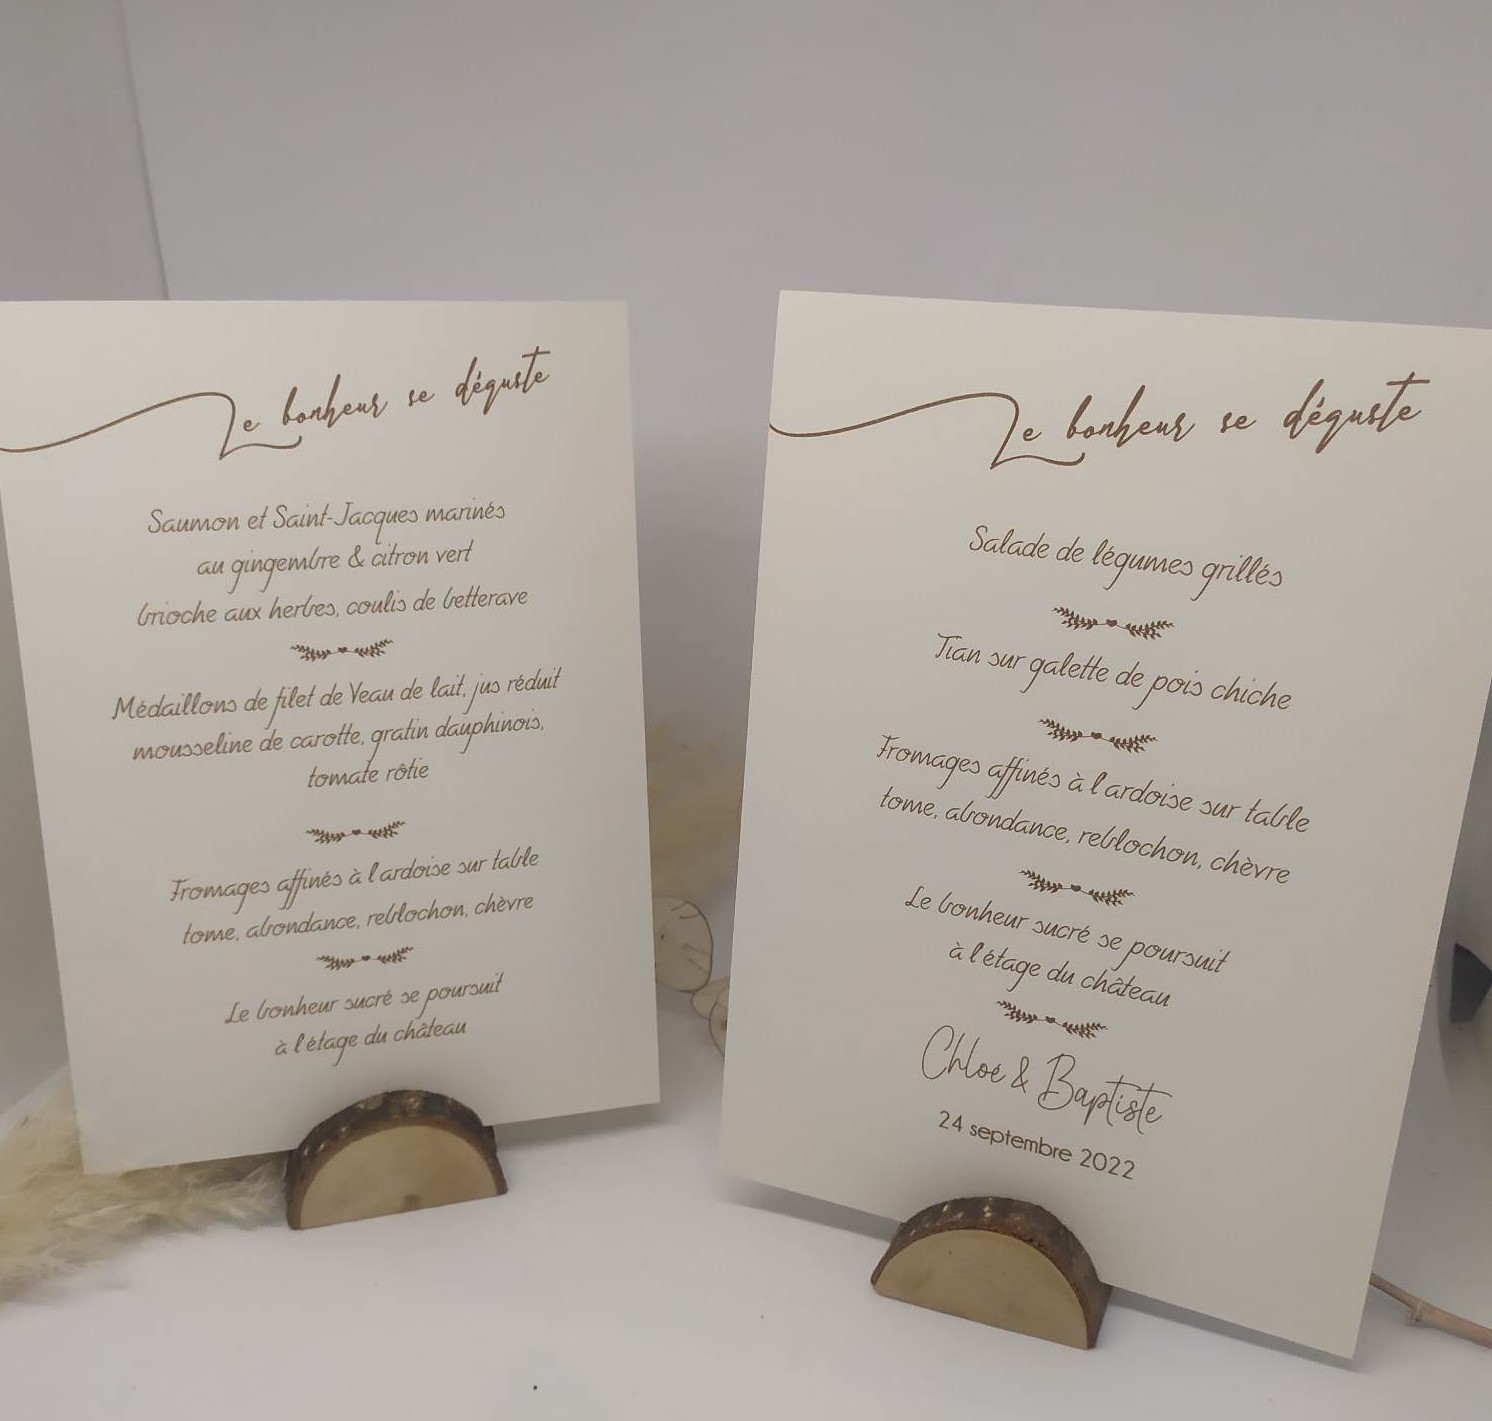 Le bonheur se déguste
Saumon et Saint-Jacques marinés
au gingembre & citron vert
brioche aux herbes, coulis de betterave
Médaillons de filet de Veau de lait, jus réduit
mousseline de carotte, gratin dauphinois,
tomate rôtie
Fromages affinés à l'ardoise sur table
tome, abondance, reblochon, chèvre
Le bonheur sucré se poursuit
à l'étage du château
Le bonheur se déguste
Salade de légumes grillés
Tian sur galette de pois chiche
Fromages affinés à l'ardoise sur table
tome, abondance, reblochon, chèvre
Le bonheur sucré se poursuit
à l'étage du château
Chloé & Baptiste
24 septembre 2022